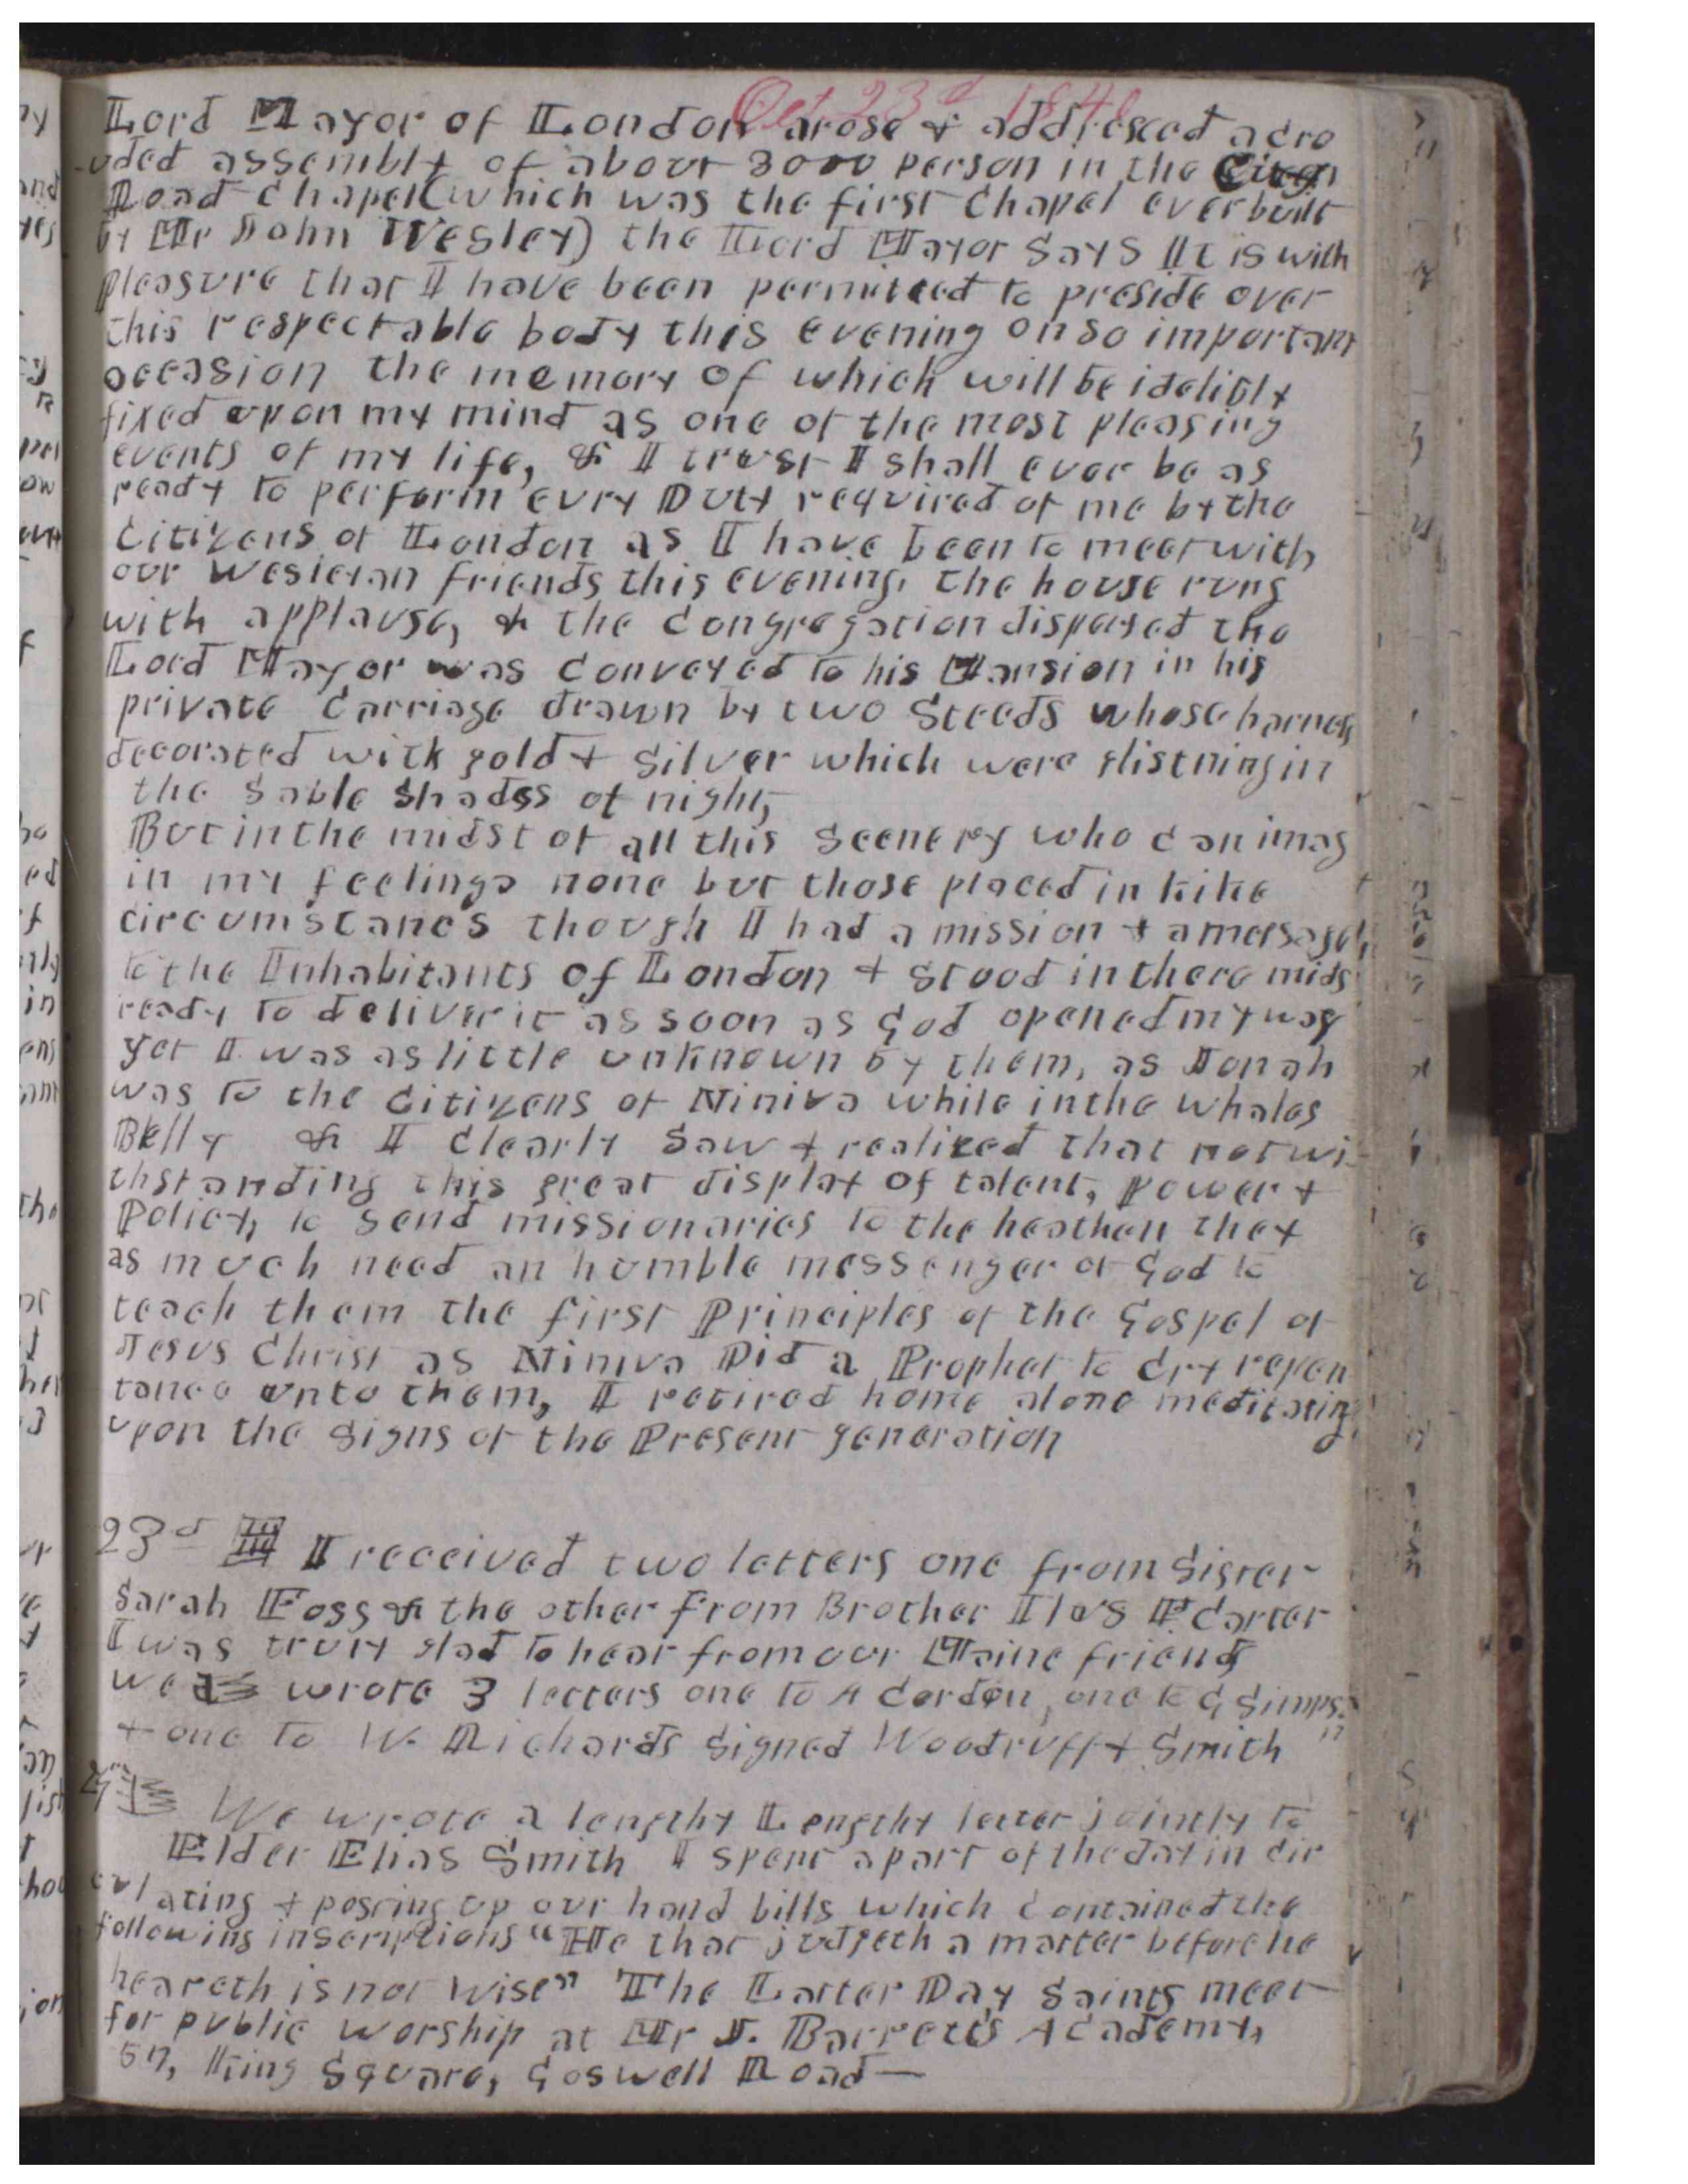 Oct 23d 1840
Lord Mayor of London arose & addressed a cro
-uded assembly of about 3000 person in the City
Road Chapel (which was the first Chapel ever built
by Mr John Wesley) the Lord Mayor Says It is with
pleasure that I have been permitted to preside over
this respectable body this evening on so important
occasion the memory of which will be idelibly
fixed upon my mind as one of the most pleasing
events of my life, & I trust I shall ever be as
ready to perform evry Duty required of me by the
Citizens of London as I have been to meet with
our Wesleyan friends this evening, the house rung
with applause, & the Congregation dispersed the
Lord Mayor was Conveyed to his Mansion in his
private Carriage drawn by two Steeds whose harness
decorated with gold & Silver which were glistning in
the Sable Shades of night,
But in the midst of all this Scenery who Can imag
in my feelings none but those placed in like
circumstances though I had a mission & a message
to the Inhabitants of London & Stood in there mids
ready to deliver it as soon as God opened my way
yet I was as little unknown by them, as Jonah
was to the Citizens of Niniva while in the whales
Belly & I Clearly Saw & realized that notwi-
thstanding this great display of talent, Power &
Policy, to Send missionaries to the heathen they
as much need an humble messenger of God to
teach them the first Principles of the Gospel of
Jesus Christ as Niniva Did a Prophet to Cry repen
tance unto them, I retired home alone meditating
upon the Signs of the Present generation
23d I received two letters one from Sister
Sarah Foss & the other from Brother Ilus F Carter
I was truly glad to hear from our Maine friends
we wrote 3 letters one to A Cordon, one to G Simps
on
& one to W. Richards Signed Woodruff & Smith
24th We wrote a lengthy Lengthy letter jointly to
Elder Elias Smith I spent a part of the day in cir
culating & posting up our hand bills which Contained the
following inscriptions "He that judgeth a matter before he
heareth is not wise" The Latter Day Saints meet
for public worship at Mr J. Barrett's Academy,
57, King Square, Goswell Road—